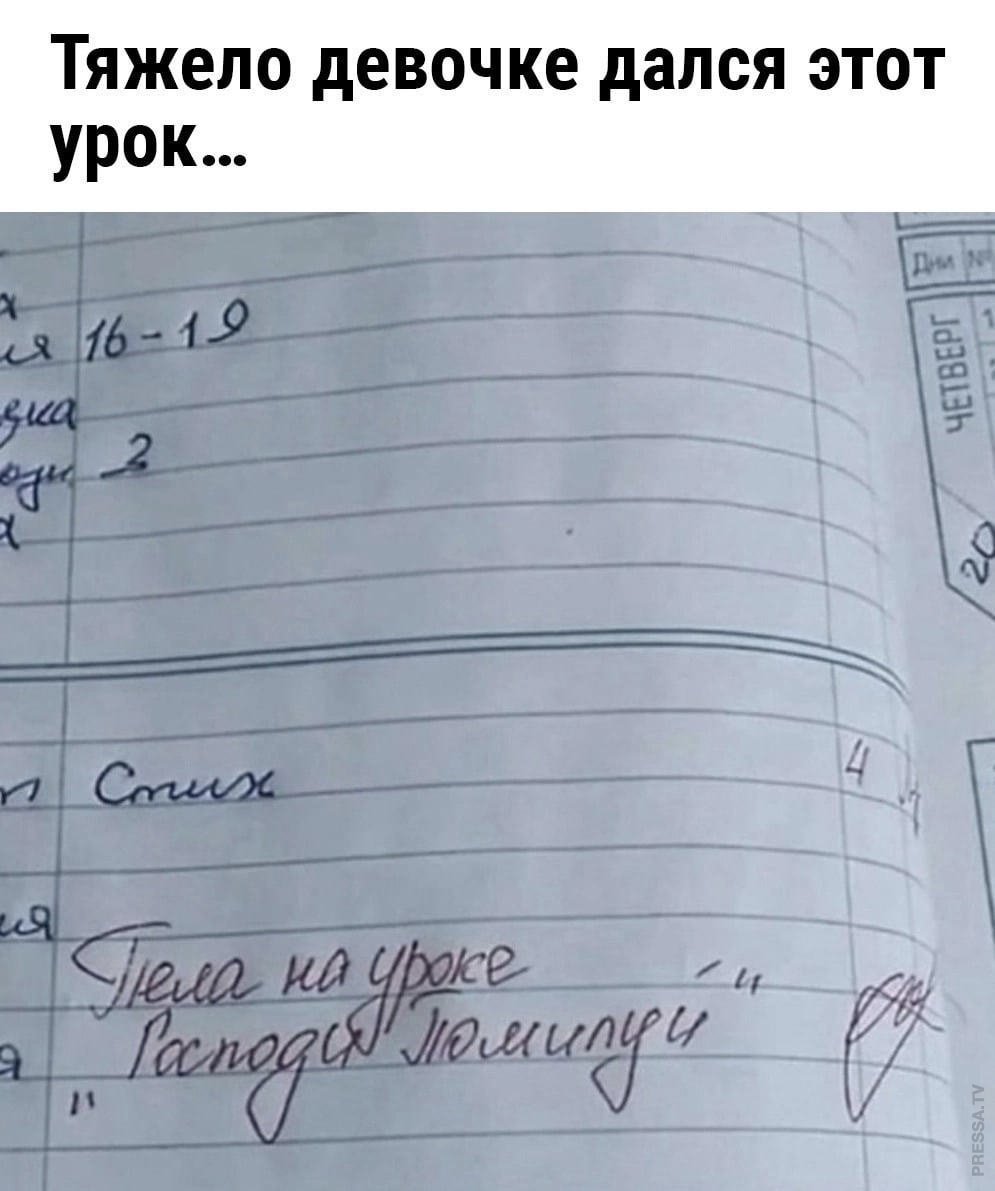 Тяжело девочке дался этот
урок...
Дни №
ЧЕТВЕРГ
1
16-19
2
20
Стих 4
Пела на уроке
"Господи Помилуй"
PRESSA.TV